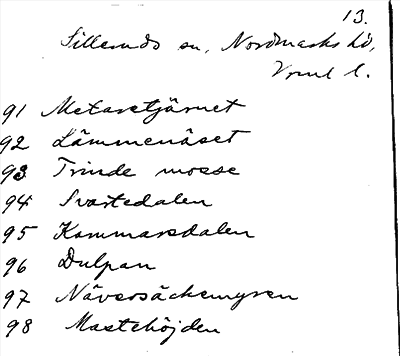 13.
Silleruds sn, Nordmarks hd,
Vrml l.
91 Metaretjärnet
92 Lämmenäset
93 Trinde mosse
94 Svartedalen
95 Kammarsdalen
96 Dulpan
97 Näversäckemyren
98 Mastehöjden